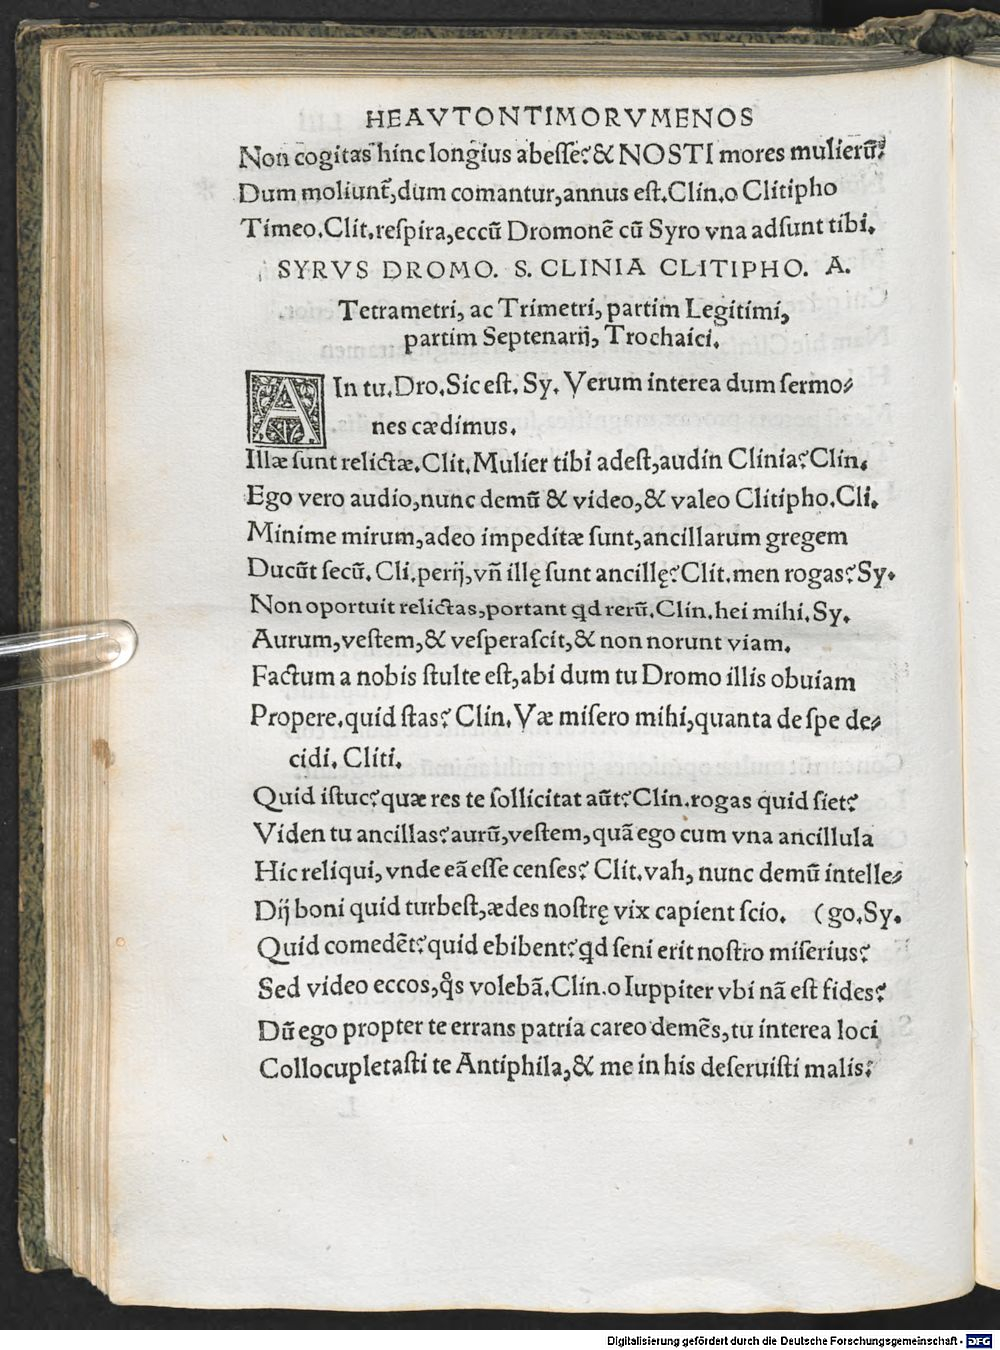 HEAVTONTIMORVMENOS
Non cogitas hinc longius abesse? & NOSTI mores mulierũ?
Dum moliunt̃, dum comantur, annus est. Clin. o Clitipho
Timeo. Clit. respira, eccũ Dromonẽ cũ Syro vna adsunt tibi.
SYRVS DROMO. S. CLINIA CLITIPHO. A.
Tetrametri, ac Trimetri, partim Legitimi,
partim Septenarij, Trochaici.
AIn tu. Dro. Sic est. Sy. Verum interea dum sermo-
nes cædimus.
Illæ sunt relictæ. Clit. Mulier tibi adest, audin Clinia? Clin.
Ego vero audio, nunc demũ & video, & valeo Clitipho. Cli.
Minime mirum, adeo impeditæ sunt, ancillarum gregem
Ducũt secũ. Cli. perij, vñ illę sunt ancillę? Clit. men rogas? Sy.
Non oportuit relictas, portant qd rerũ. Clin. hei mihi. Sy.
Aurum, vestem, & vesperascit, & non norunt viam.
Factum a nobis stulte est, abi dum tu Dromo illis obuiam
Propere. quid stas? Clin. Væ misero mihi, quanta de spe de-
cidi. Cliti.
Quid istuc? quæ res te sollicitat aũt? Clin. rogas quid siet?
Viden tu ancillas? aurũ, vestem, quã ego cum vna ancillula
Hic reliqui, vnde eã esse censes? Clit. vah, nunc demũ intelle-
Dij boni quid turbest, ædes nostrę vix capient scio. (go. Sy.
Quid comedẽt? quid ebibent? qd seni erit nostro miserius?
Sed video eccos, q̊s volebã. Clin. o Iuppiter vbi nã est fides?
Dũ ego propter te errans patria careo demẽs, tu interea loci
Collocupletasti te Antiphila, & me in his deseruisti malis?
Digitalisierung gefördert durch die Deutsche Forschungsgemeinschaft - DFG